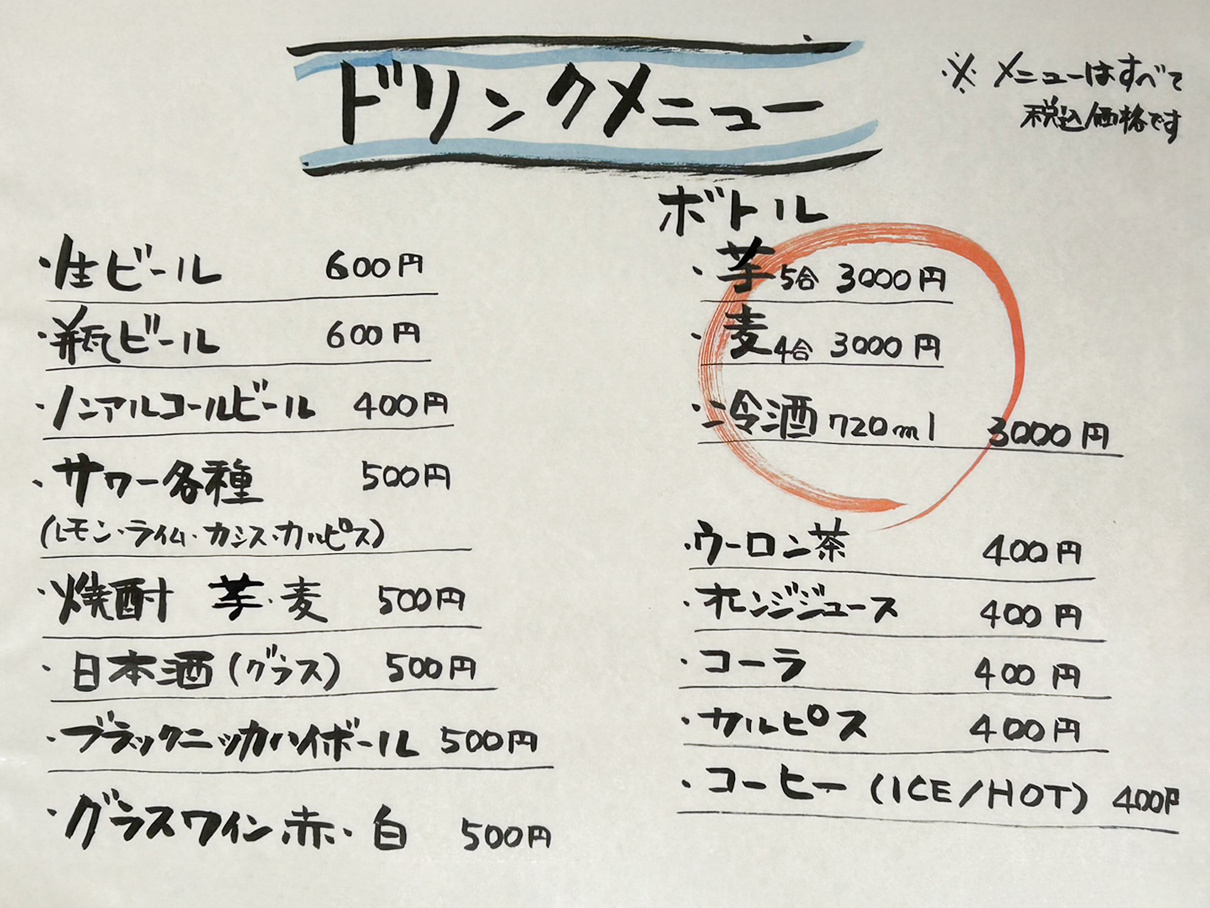 ドリンクメニュー
※ メニューはすべて
税込価格です
・生ビール 600円
・瓶ビール 600円
・ノンアルコールビール 400円
・サワー各種 500円
(レモン・ライム・カシス・カルピス)
・焼酎 芋・麦 500円
・日本酒(グラス) 500円
・ブラックニッカハイボール 500円
・グラスワイン 赤・白 500円
ボトル
・芋 5合 3000円
・麦 4合 3000円
・冷酒 720ml 3000円
・ウーロン茶 400円
・オレンジジュース 400円
・コーラ 400円
・カルピス 400円
・コーヒー (ICE/HOT) 400円